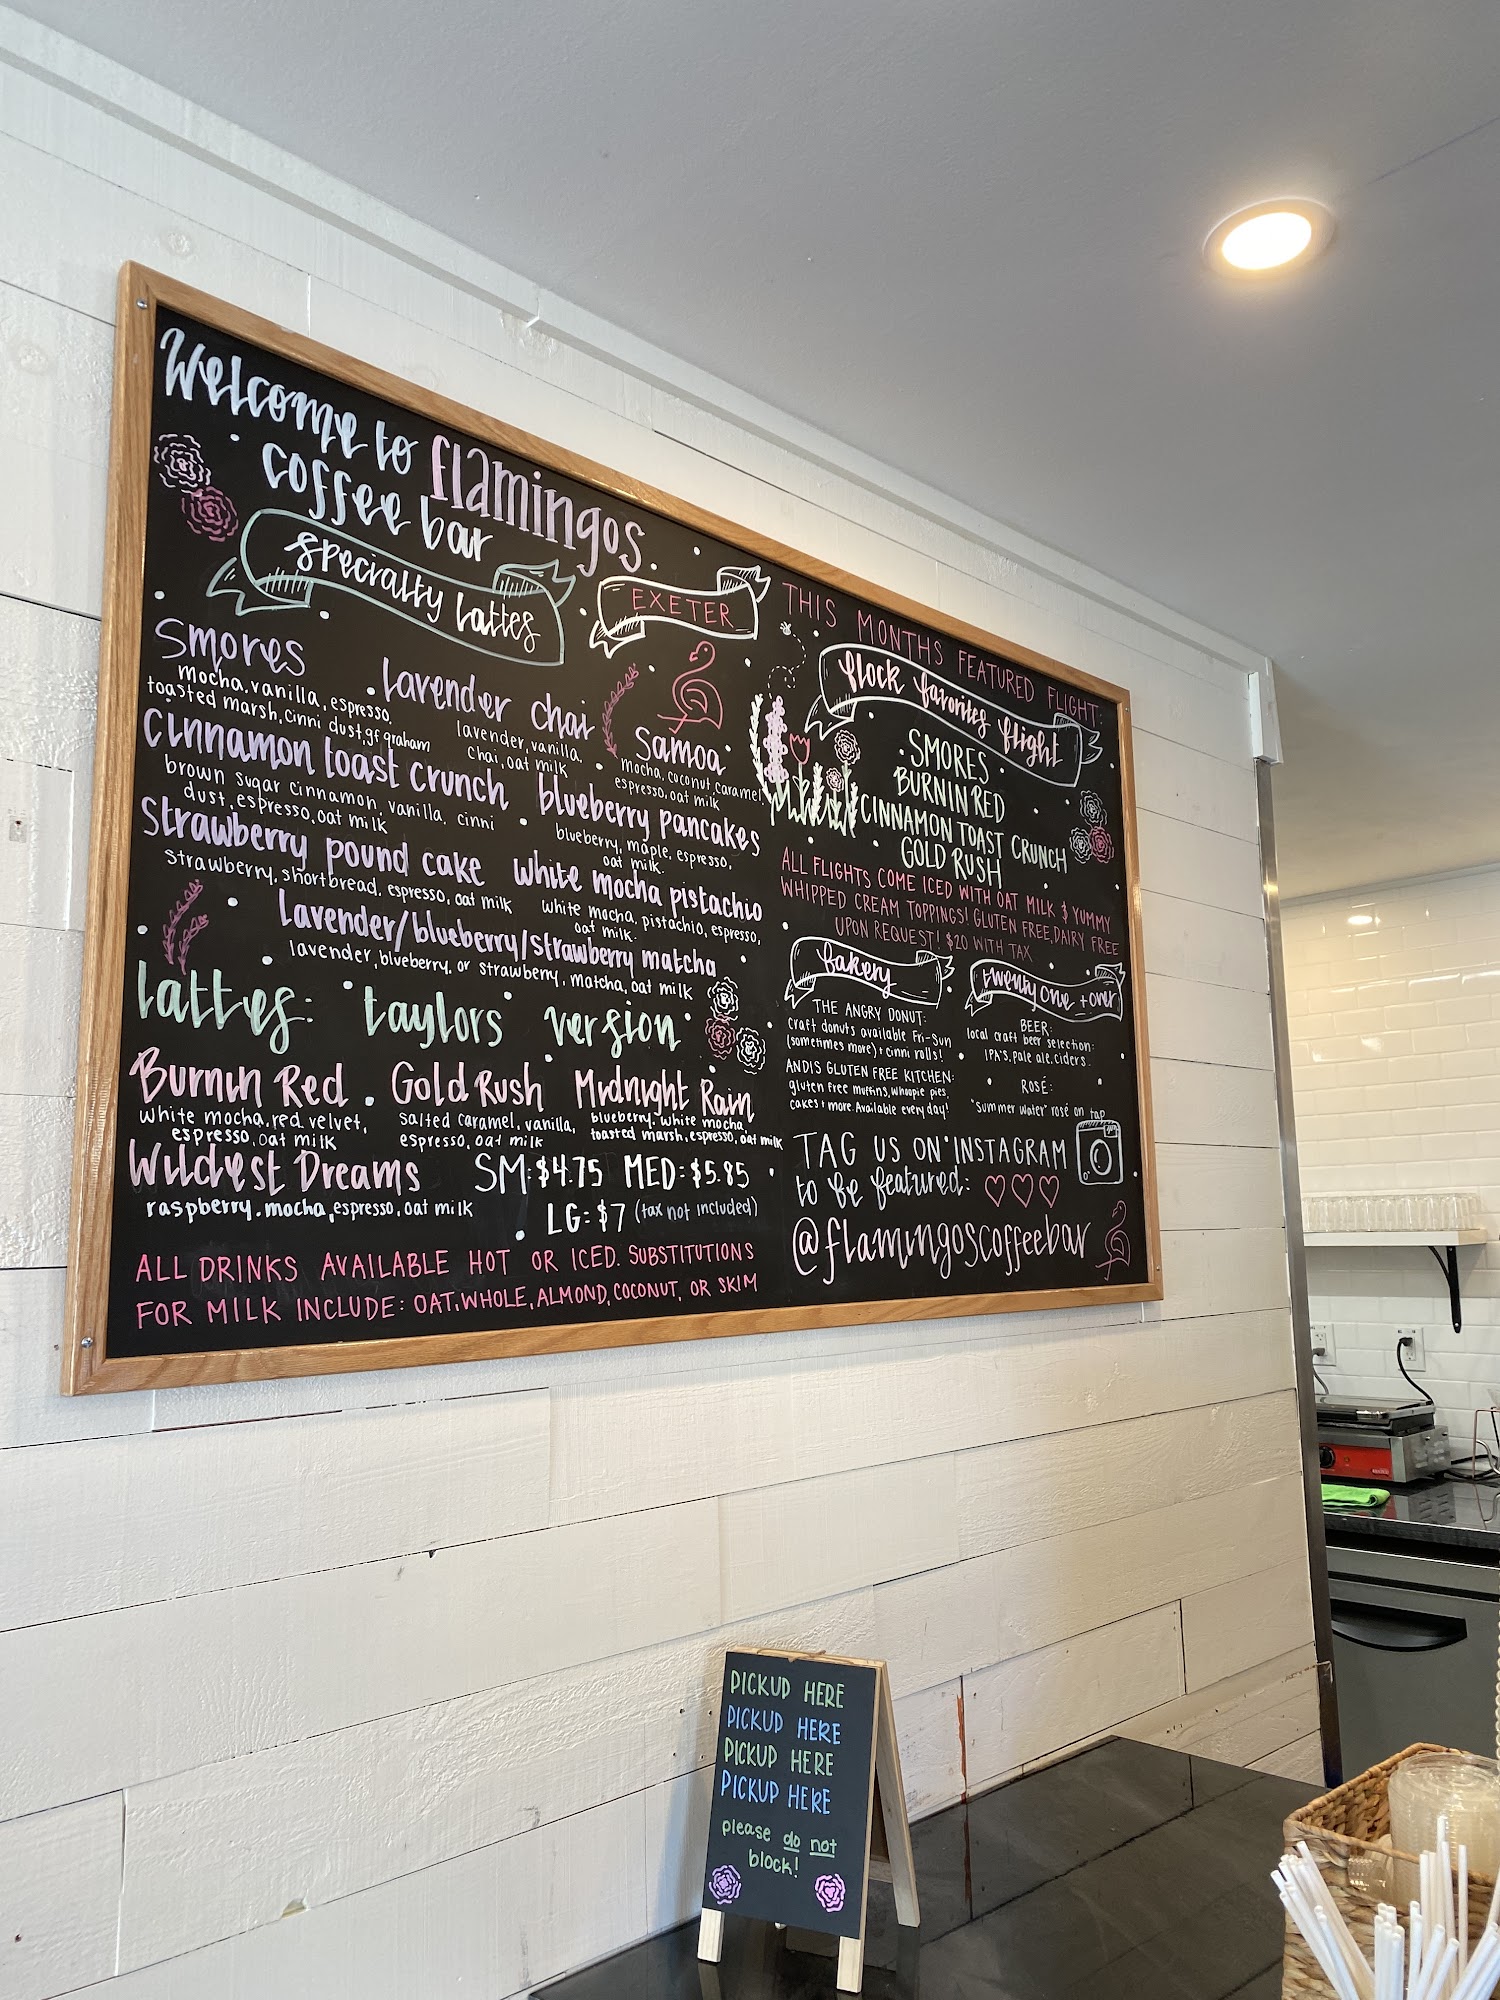 Welcome to flamingos
coffee bar
specialty lattes
EXETER
Smores
mocha, vanilla, espresso,
toasted marsh, cinni dust, gf graham
lavender chai
lavender, vanilla,
chai, oat milk
Samoa
mocha, coconut, caramel,
espresso, oat milk
cinnamon toast crunch
brown sugar cinnamon, vanilla, cinni
dust, espresso, oat milk
blueberry pancakes
blueberry, maple, espresso,
oat milk.
Strawberry pound cake
strawberry, shortbread, espresso, oat milk
white mocha pistachio
white mocha, pistachio, espresso,
oat milk.
Lavender/blueberry/strawberry matcha
lavender, blueberry, or strawberry, matcha, oat milk
lattes: taylors version
Burnin Red
white mocha, red velvet,
espresso, oat milk
Gold Rush
salted caramel, vanilla,
espresso, oat milk
Midnight Rain
blueberry, white mocha,
toasted marsh, espresso, oat milk
Wildest Dreams
raspberry, mocha, espresso, oat milk
SM: $4.75 MED: $5.85
LG: $7 (tax not included)
ALL DRINKS AVAILABLE HOT OR ICED. SUBSTITUTIONS
FOR MILK INCLUDE: OAT, WHOLE, ALMOND, COCONUT, OR SKIM
THIS MONTHS FEATURED FLIGHT:
flock favorites flight
SMORES
BURNIN RED
CINNAMON TOAST CRUNCH
GOLD RUSH
ALL FLIGHTS COME ICED WITH OAT MILK & YUMMY
WHIPPED CREAM TOPPINGS! GLUTEN FREE, DAIRY FREE
UPON REQUEST! $20 WITH TAX
bakery
THE ANGRY DONUT:
craft donuts available Fri-Sun
(sometimes more) + cinni rolls!
ANDIS GLUTEN FREE KITCHEN:
gluten free muffins, whoopie pies,
cakes + more. Available every day!
twenty one + over
BEER:
local craft beer selection:
IPA's, pale ale, ciders
ROSÉ:
"Summer water" rosé on tap
TAG US ON INSTAGRAM
to be featured:
@flamingoscoffeebar
PICKUP HERE
PICKUP HERE
PICKUP HERE
PICKUP HERE
please do not
block!